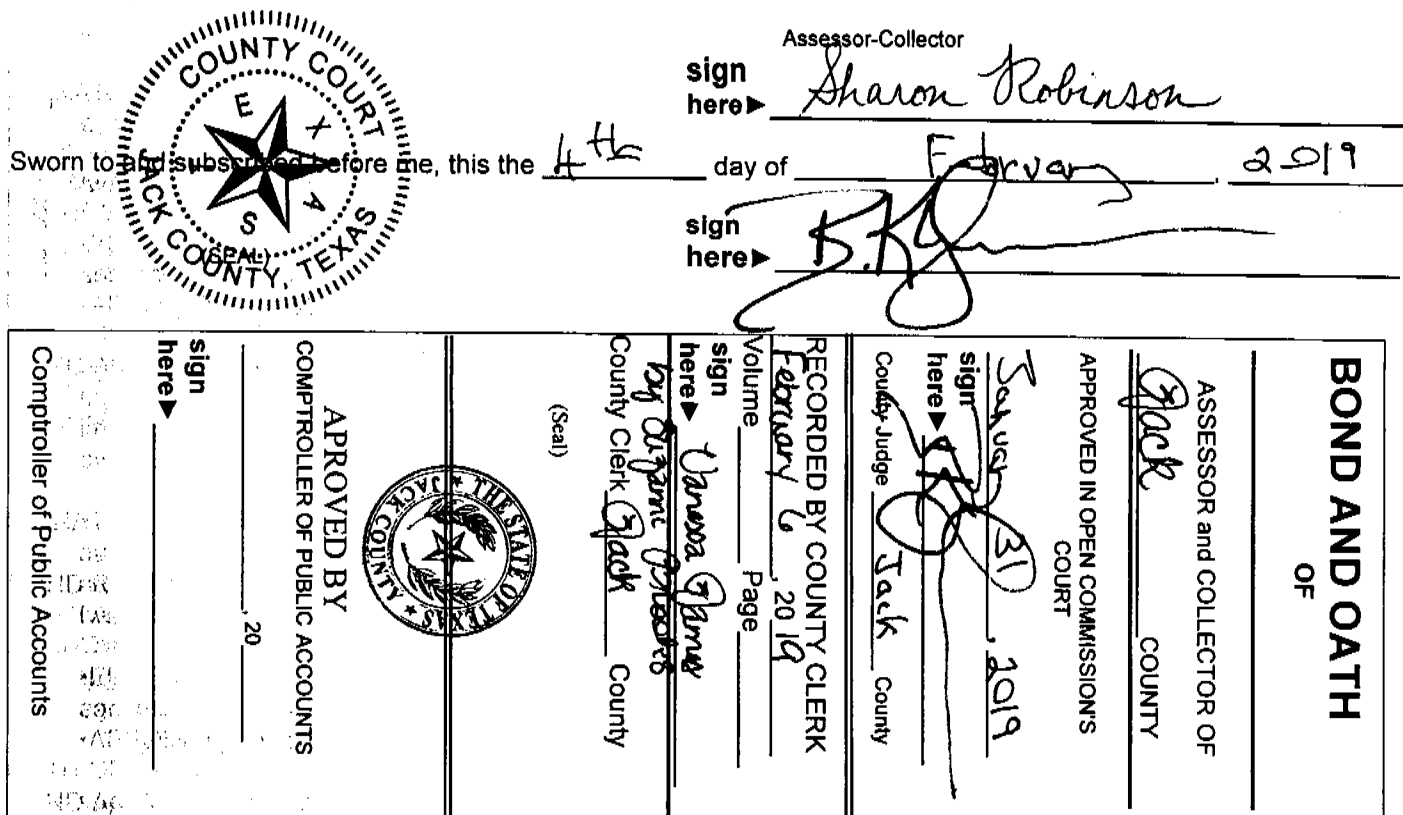 Assessor-Collector
sign here▶ Sharon Robinson
COUNTY COURT
TEXAS
JACK COUNTY, TEXAS
Sworn to and subscribed before me, this the 4th day of February, 2019
(SEAL)
sign here▶
BOND AND OATH
OF
ASSESSOR and COLLECTOR OF
Jack COUNTY
APPROVED IN OPEN COMMISSION'S
COURT
January 31, 2019
sign here▶
County Judge Jack County
RECORDED BY COUNTY CLERK
February 6, 2019
Volume Page
sign here▶ Vanessa James
by
County Clerk Jack County
(Seal)
THE STATE OF TEXAS
★ JACK COUNTY ★
APROVED BY
COMPTROLLER OF PUBLIC ACCOUNTS
, 20
sign here▶
Comptroller of Public Accounts